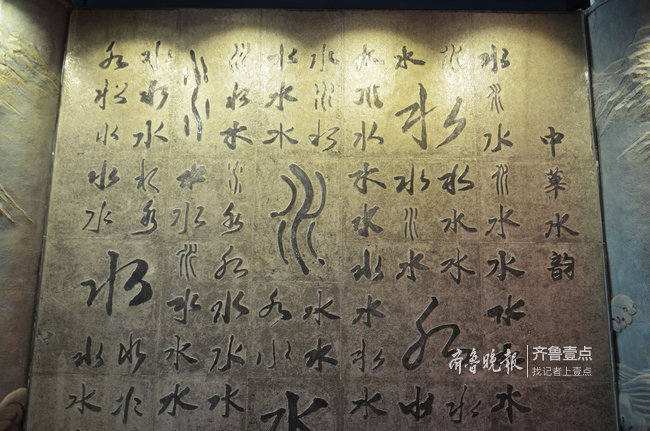 中華水韵
水水水水水水水水水
水水水水水水水
水水水水水
水水水水水水水水水
水水水水水水
水水水水水水
水水水水水水水水水
水水水水水水水
水水水水水水水
水水水水水水水水
齊魯晚報
齐鲁壹点
找记者上壹点